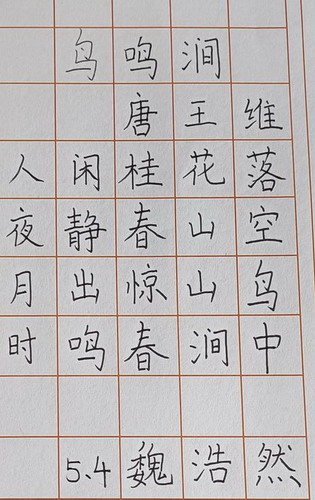 鸟鸣涧
唐王维
人闲桂花落
夜静春山空
月出惊山鸟
时鸣春涧中
5.4魏浩然